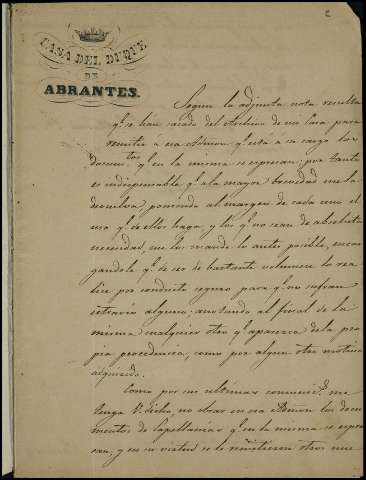 2
CASA DEL DUQUE
DE
ABRANTES.
Segun la adjunta nota resulta
qe. se han sacado del Archivo de mi Casa para
remitir á esa Admon. qe. está a su cargo los
documtos. qe. en la misma se espresan; por tanto
es indispensable qe. a la mayor brevedad me la
devuelva poniendo al margen de cada uno el
uso qe. de ellos haga, y los qe. no sean de absoluta
necesidad, me los mande lo antes posible, encar
gandole qe. de ser de bastante volumen lo rea
lice por conducto seguro para qe. no sufran
extravio alguno; anotando al final de la
misma cualquier otro qe. aparezca de la pro
pia procedencia, como por algun otro motivo
adquirido.
Como por mi ultima me
tenga V. dicho, no obrar en esa Admon los docu
mentos de Capellanias qe. en la misma se espre
san, y en su virtud se le remitieron otros nue